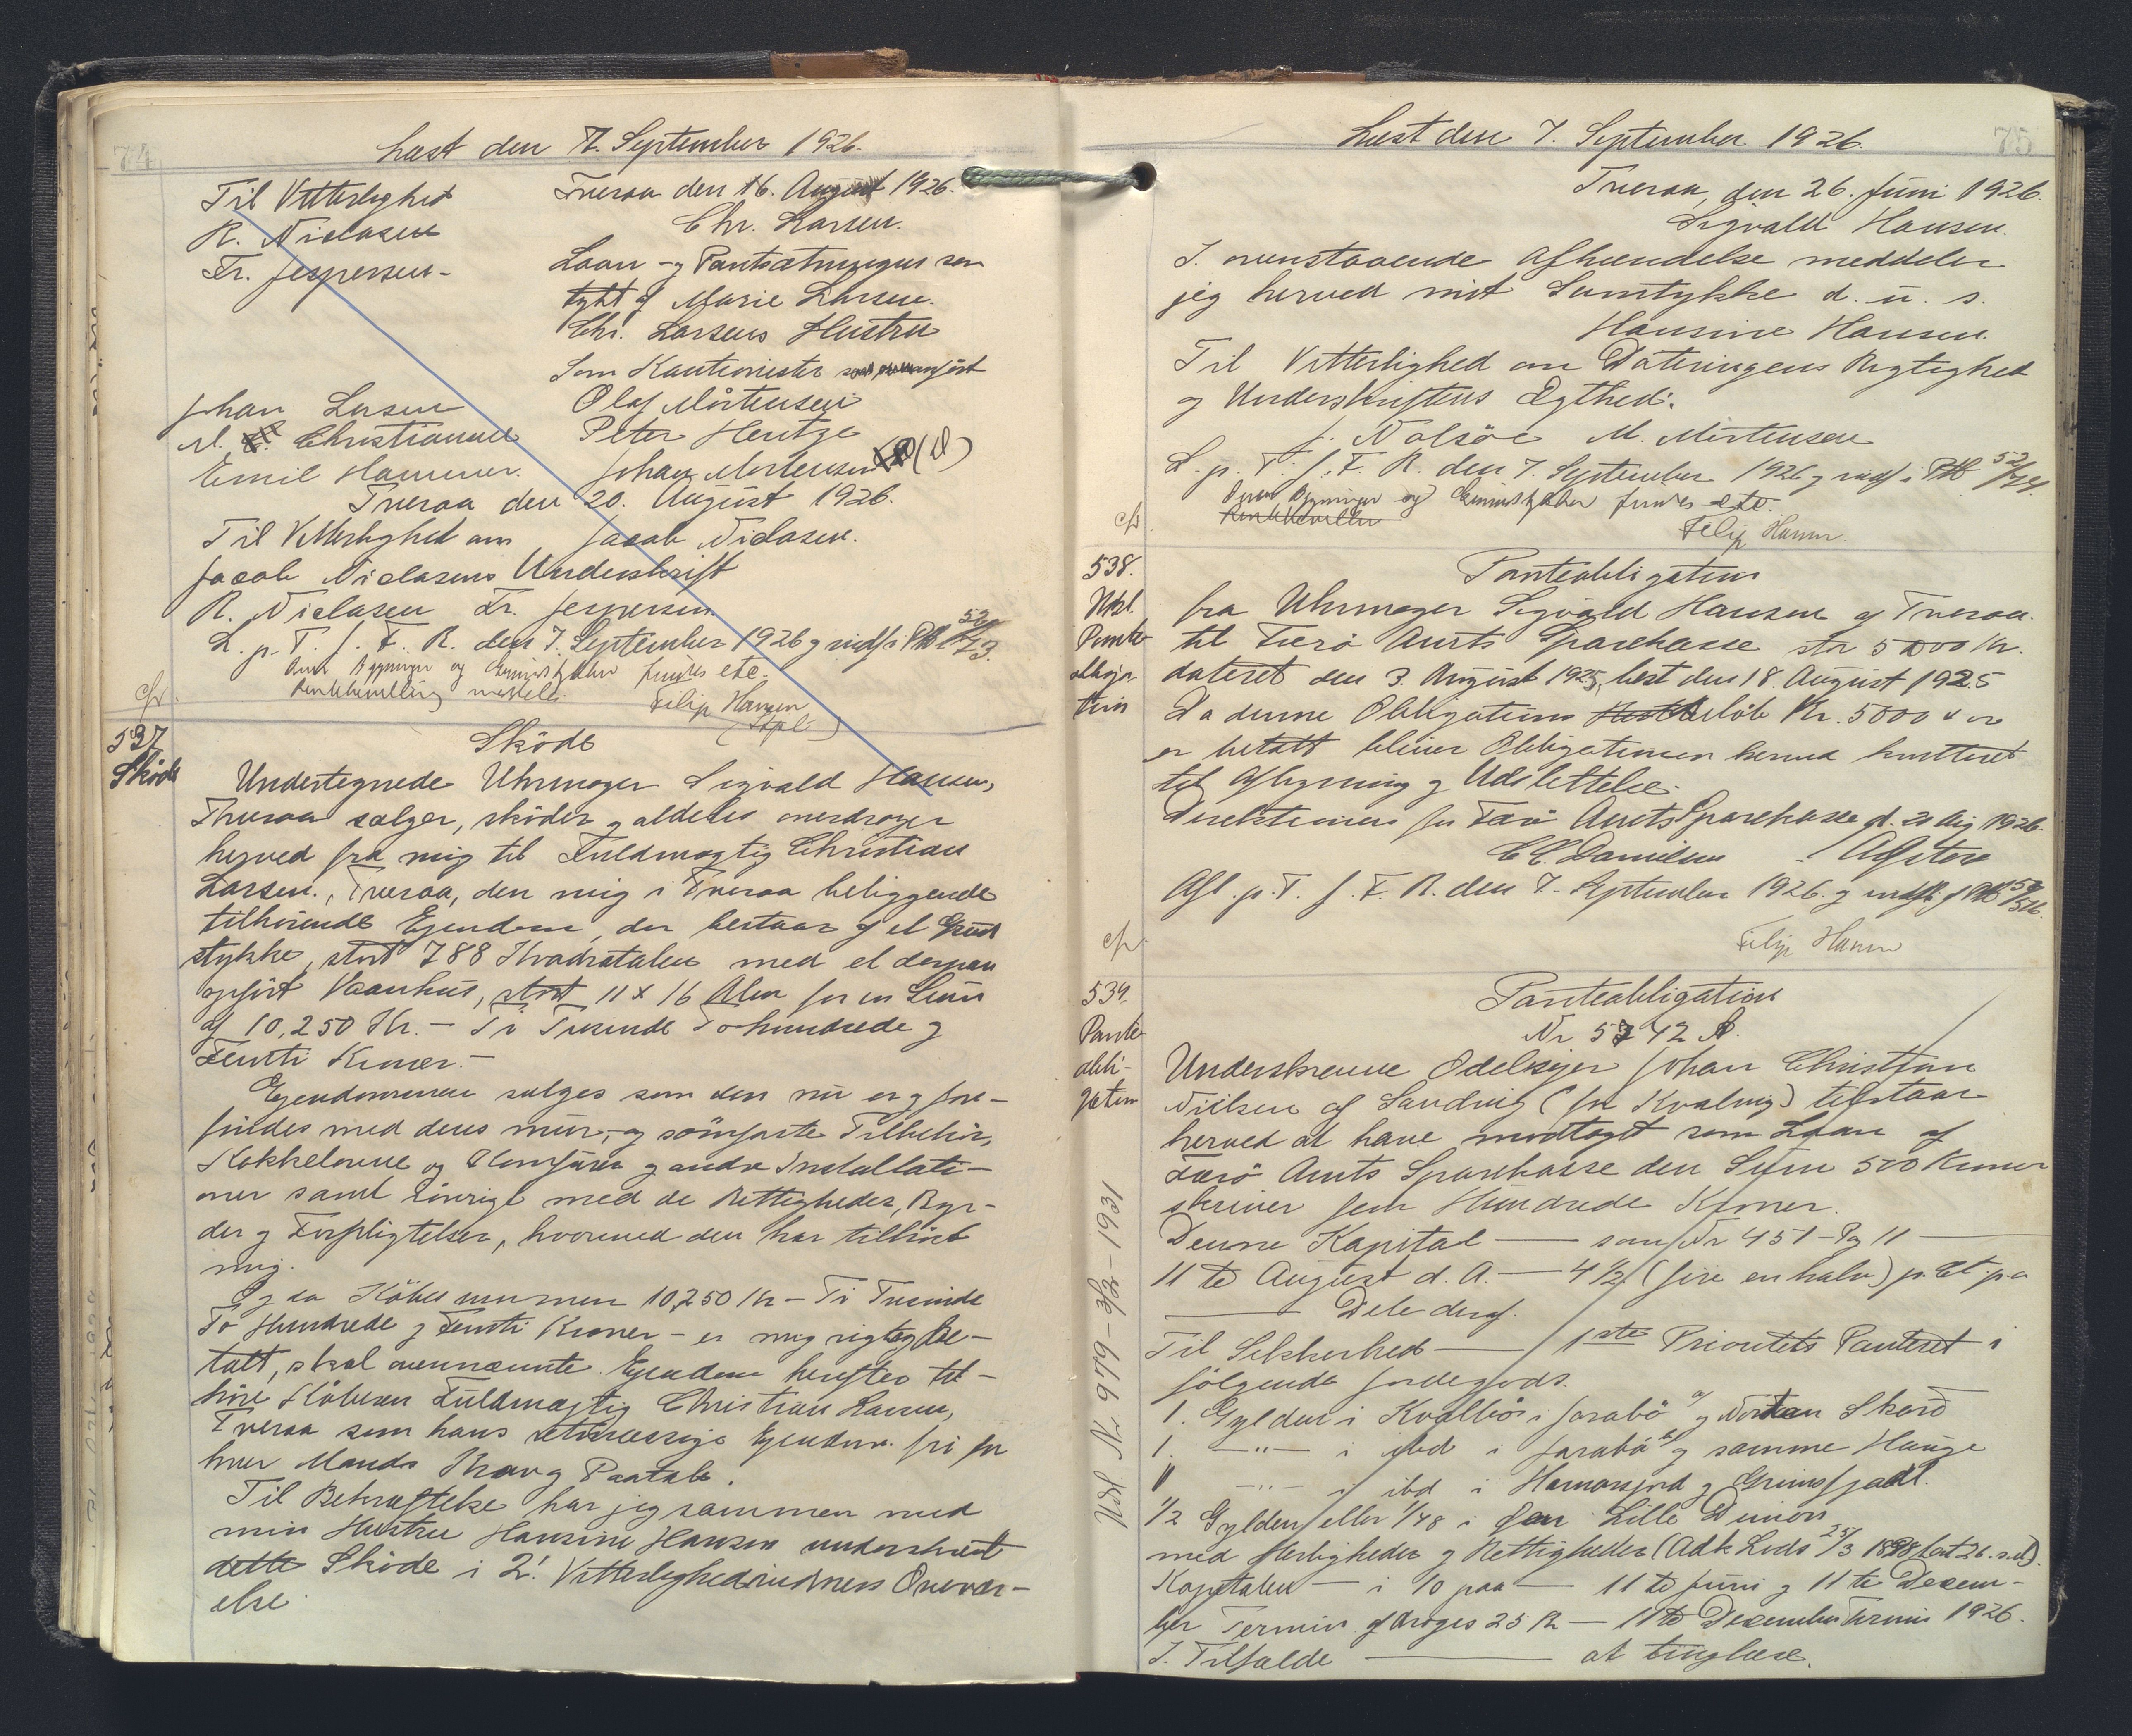 74
Læst den 7. September 1926.
Til Vitterlighed Tveraa den 16. August 1926.
R. Niclasen Chr. Larsen.
Fr. Jespersen- Laan- og Pantsætningen sam
tykt af Marie Larsen.
Chr. Larsens Hustru
Som Kautionister
Johan Larsen Olaf Mörtensen
M. Christiansen Peter Hentze
Emil Hammer. Johan Mortensen
Tveraa den 20. August 1926.
Til Vitterlighed om Jacob Niclasen.
Jacob Niclasens Underskrift
R. Niclasen Fr. Jespersen
L. p. T. f. F. R. den 7. September 1926 og indf. i PB 52/73.
Om Bygninger og Gennistykker findes etc.
Renkbevilling meddelt. Filip Hansen
cfr. (Stpl)
537 Sköde
Sköde Undertegnede Uhrmager Sigvald Hansen,
Tveraa sælger, sköder og aldeles overdrager
herved fra mig til Fuldmægtig Christian
Larsen, Tveraa, den mig i Tveraa beliggende
tilhörende Ejendom, der bestaar af et Grund
stykke, stort 788 Kvadratalen med et derpaa
opfört Vaanhus, stort 11 x 16 Alen for en Sum
af 10,250 Kr. - Ti Tusinde To hundrede og
Femti Kroner.-
Ejendommen sælges som den nu er og fore-
findes med dens mur- og sömfaste Tilbehör,
Kakkelovne og Komfurer og andre Installati-
oner samt iövrigt med de Rettigheder, Byr-
der og Forpligtelser, hvormed den har tilhört
mig.
Og da Köbesummen 10,250 Kr - Ti Tusinde
To Hundrede og Femti Kroner - er mig rigtig be-
talt, skal ovennævnte Ejendom herefter til-
höre Köberen Fuldmægtig Christian Larsen,
Tveraa som hans retmæssige Ejendom fri for
hver Mands Krav og Paatale.
Til Bekræftelse har jeg sammen med
min Hustru Hansine Hansen underskrevet
dette Sköde i 2. Vitterlighedsvidners Overvær-
else.
75
Læst den 7. September 1926.
Tveraa, den 26. Juni 1926.
Sigvald Hansen.
I. ovenstaaende Afhændelse meddeler
jeg herved mit Samtykke d. u. s.
Hansine Hansen.
Til Vitterlighed om Dateringens Rigtighed
og Underskriftens Ægthed:
J. Nolsöe M. Mörtensen
L. p. T. f. F. R. den 7. September 1926 og indf. i PB 52/74.
Om Bygninger og Gennistykker findes etc.
cfr. Filip Hansen.
538. Panteobligation
Udsl. fra Uhrmager Sigvald Hansen af Tveraa
Pante til Færö Amts Sparekasse stor 5000 Kr.
obliga dateret den 3. August 1925, læst den 18. August 1925
tion Da denne Obligations Belöb Kr. 5000
er betalt bliver Obligationen herved kvitteret
til Aflysning og Udslettelse.
Direktionen for Færö Amts Sparekasse d. 21 Aug 1926.
C. C. Danielsen
Afl. p. T. f. F. R. den 7. September 1926. og indf. i PB 50/516.
cfr. Filip Hansen
539. Panteobligation
Pante Nr 5742 A.
obli- Underskrevne Odelsejer Johan Christian
gation Nielsen af Sandvig (för Kvalvig) tilstaar
herved at have modtaget som Laan af
Færö Amts Sparekasse den Sum 500 Kroner
skriver fem Hundrede Kroner.
Denne Kapital — som Nr 451 - Pag 11 —
11 te August d. A. — 4 1/2 (fire en halv) p. Ct. p. a
— Dele deraf.
Til Sikkerhed — 1ste Prioritets Panteret i
fölgende Jordegods.
1. Gylden i Kvalbös i Jarabö og Nordan Skard
1. -"- i ibd i Jarabö og samme Hauge
" -"- i ibd i Hamarsjord og Grimsfjadl.
1/2 Gylden eller 1/48 i Lille Dimon
med Herligheder og Rettigheder (Adk Lods 25/3 1898 læst 26. s.d.).
Kapitalen — i 10 paa — 11 te Juni og 11 te Decem-
ber Termin afdrages 25 Kr — 11te December Termin 1926.
I. Tilfælde — at tinglæse.
Udsl. Nr. 979 - 3/2 - 1931